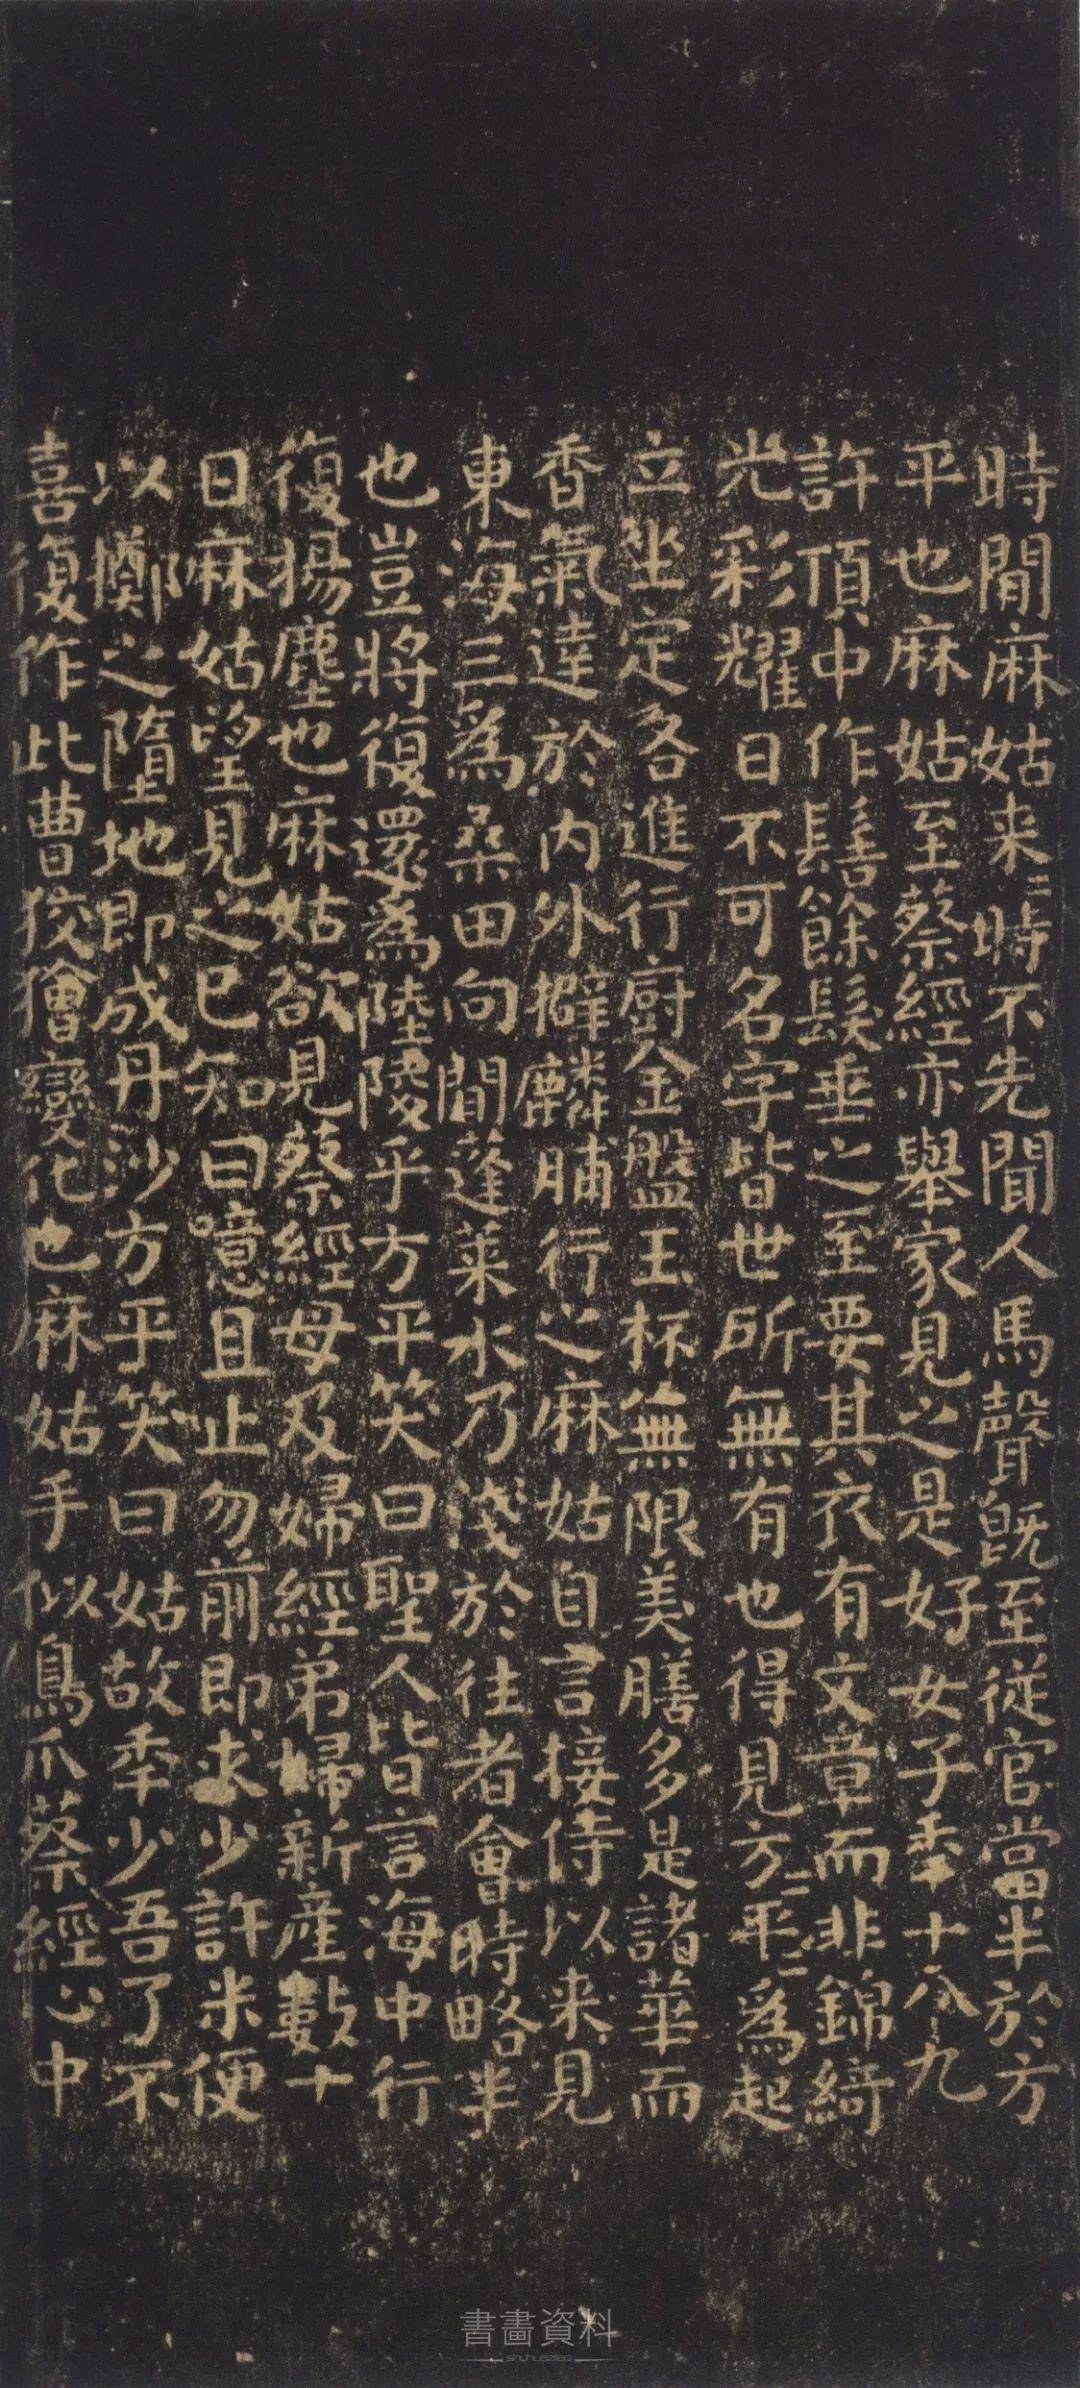 時間麻姑来〻時不先聞人馬聲既至従官當半於方
平也麻姑至蔡經亦舉家見之是好女子年十八九
許頂中作髻餘髮垂之至要其衣有文章而非錦綺
光彩耀日不可名字皆世所無有也得見方〻平〻為起
立坐定各進行廚金盤玉杯無限美膳多是諸華而
香氣達於內外擗麟脯行之麻姑自言接侍以来見
東海三為桑田向間蓬莱水乃淺於往者會時略半
也豈將復還為陸陵乎方平笑曰聖人皆言海中行
復揚塵也麻姑欲見蔡經母及婦經弟婦新產數十
日麻姑望見之已知曰噫且止勿前即求少許米便
以擲之墮地即成丹沙方平笑曰姑故年少吾了不
喜復作此曹狡獪變化也麻姑手似鳥爪蔡經心中
書畫資料
shuhuaziliao